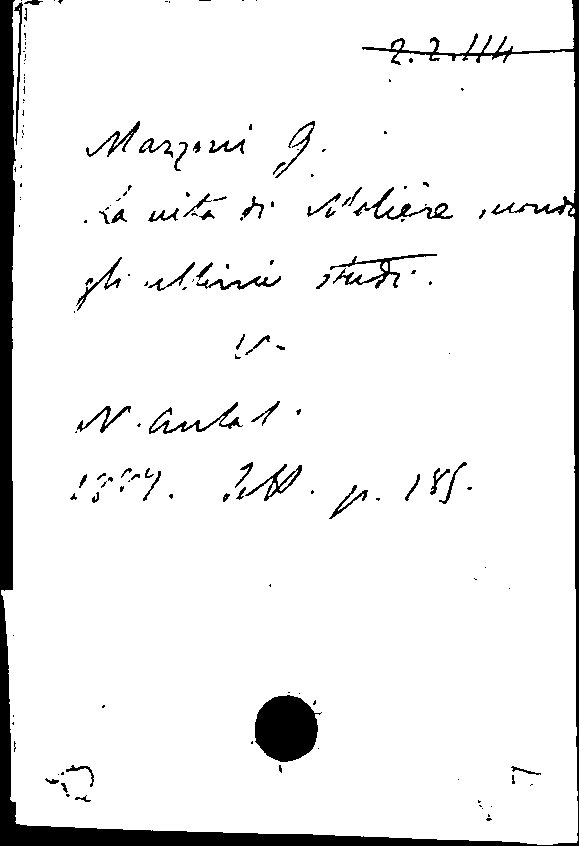 2.2.114
Mazzoni G.
La vita di Molière secondo
gli ultimi studi.
V.
N. Antol.
p. 185.